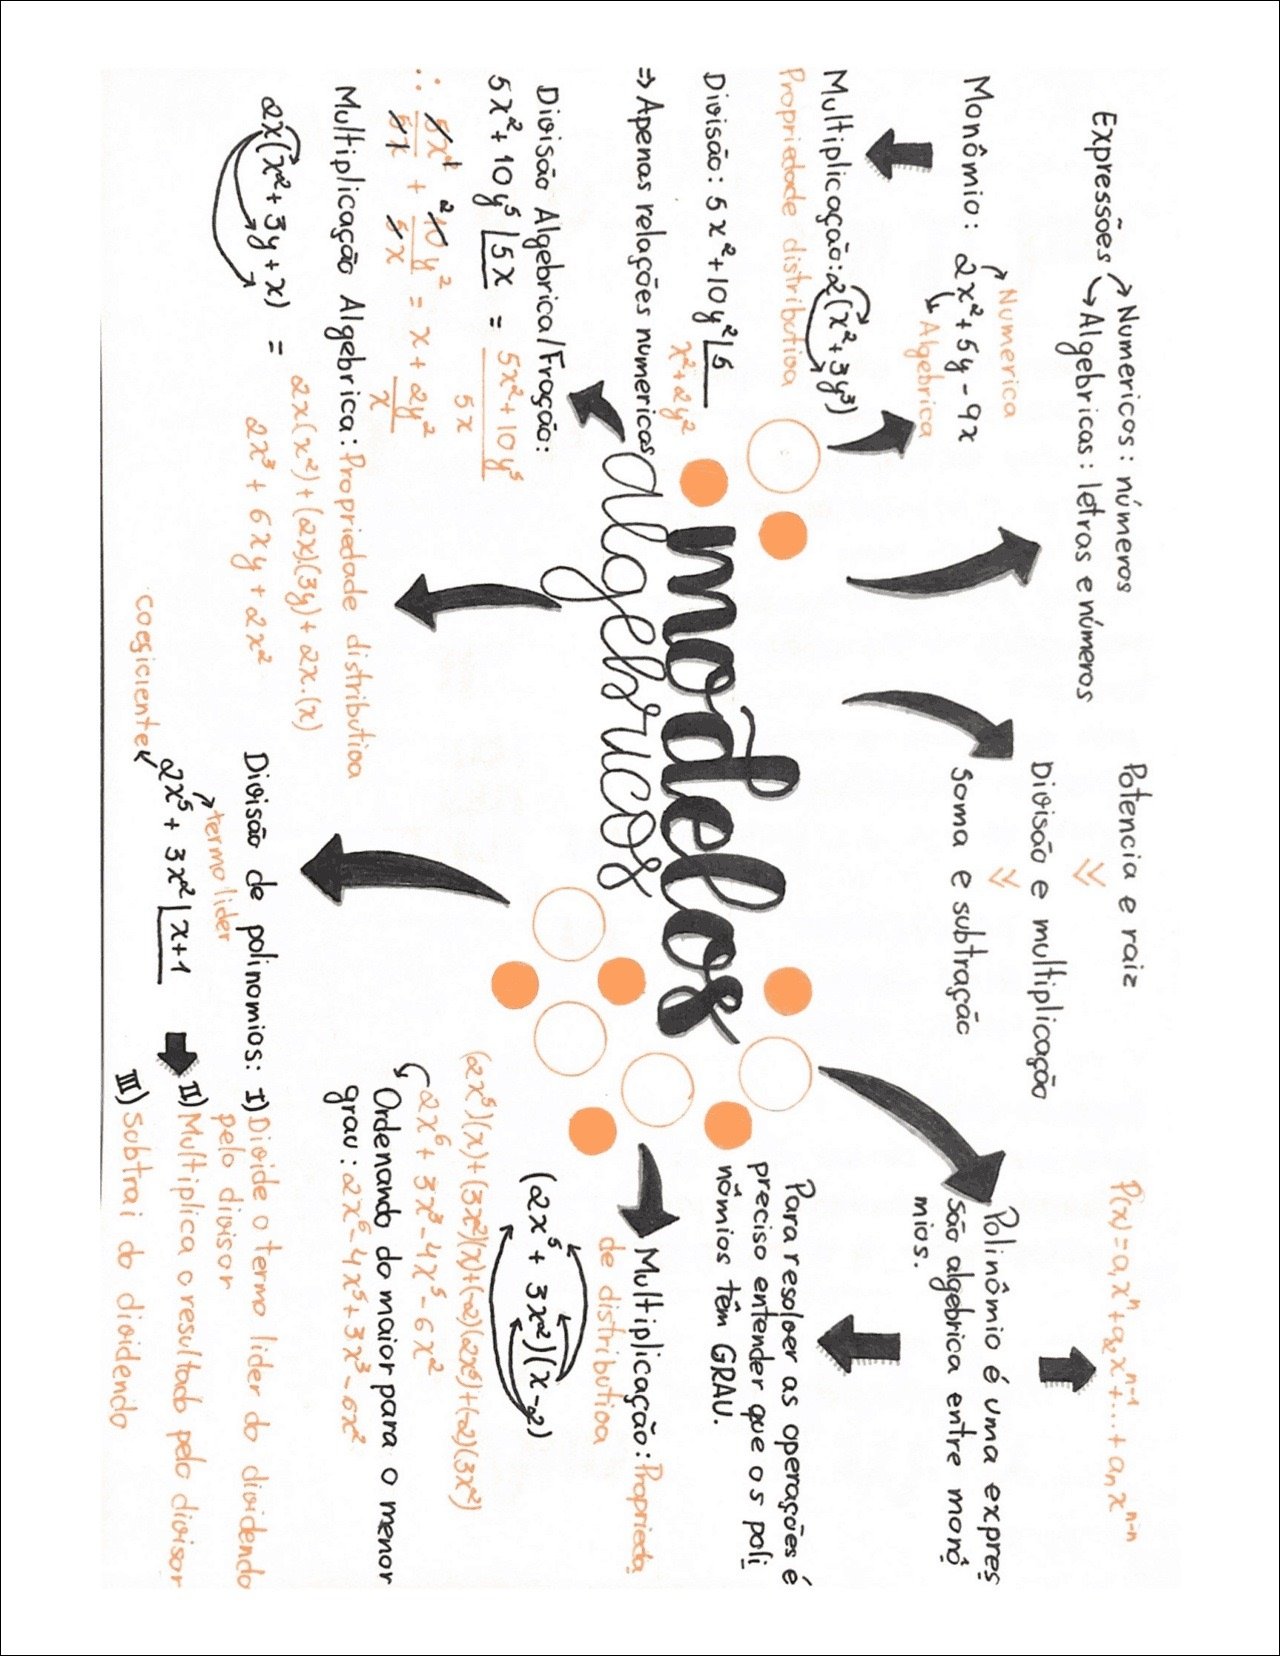 Expressões → Numericos: números
→ Algebricas: letras e números
Monômio: 2x²+5y-9x
Numerica
Algebrica
Multiplicação: 2(x²+3y³)
Propriedade distributiva
Divisão: 5x²+10y² |5
x²+2y²
⇒ Apenas relações numericas
Divisão Algebrica/Fração:
5x²+10y⁵ |5x = 5x²+10y⁵
5x
∴ 5x² + 10y² = x + 2y²
5x 5x x
Multiplicação Algebrica: Propriedade distributiva
2x(x²+3y+x) = 2x(x²)+(2x)(3y)+2x.(x)
2x³ + 6xy + 2x²
modelos
algebrucos
Potencia e raiz
Divisão e multiplicação
Soma e subtração
P(x) = a₁xⁿ+a₂xⁿ⁻¹+...+aₙxⁿ⁻ⁿ
Polinômio é uma expres
são algebrica entre monô
mios.
Para resolver as operações é
preciso entender que os poli
nômios têm GRAU.
Multiplicação: Proprieda
de distributiva
(2x⁵ + 3x²)(x-2)
(2x⁵)(x)+(3x²)(x)+(-2)(2x⁵)+(-2)(3x²)
2x⁶ + 3x³ - 4x⁵ - 6x²
Ordenando do maior para o menor
grau: 2x⁶-4x⁵+3x³-6x²
Divisão de polinomios: I) Divide o termo lider do dividendo
pelo divisor
termo lider
coeficiente
2x⁵ + 3x² |x+1
II) Multiplica o resultado pelo divisor
III) Subtrai do dividendo